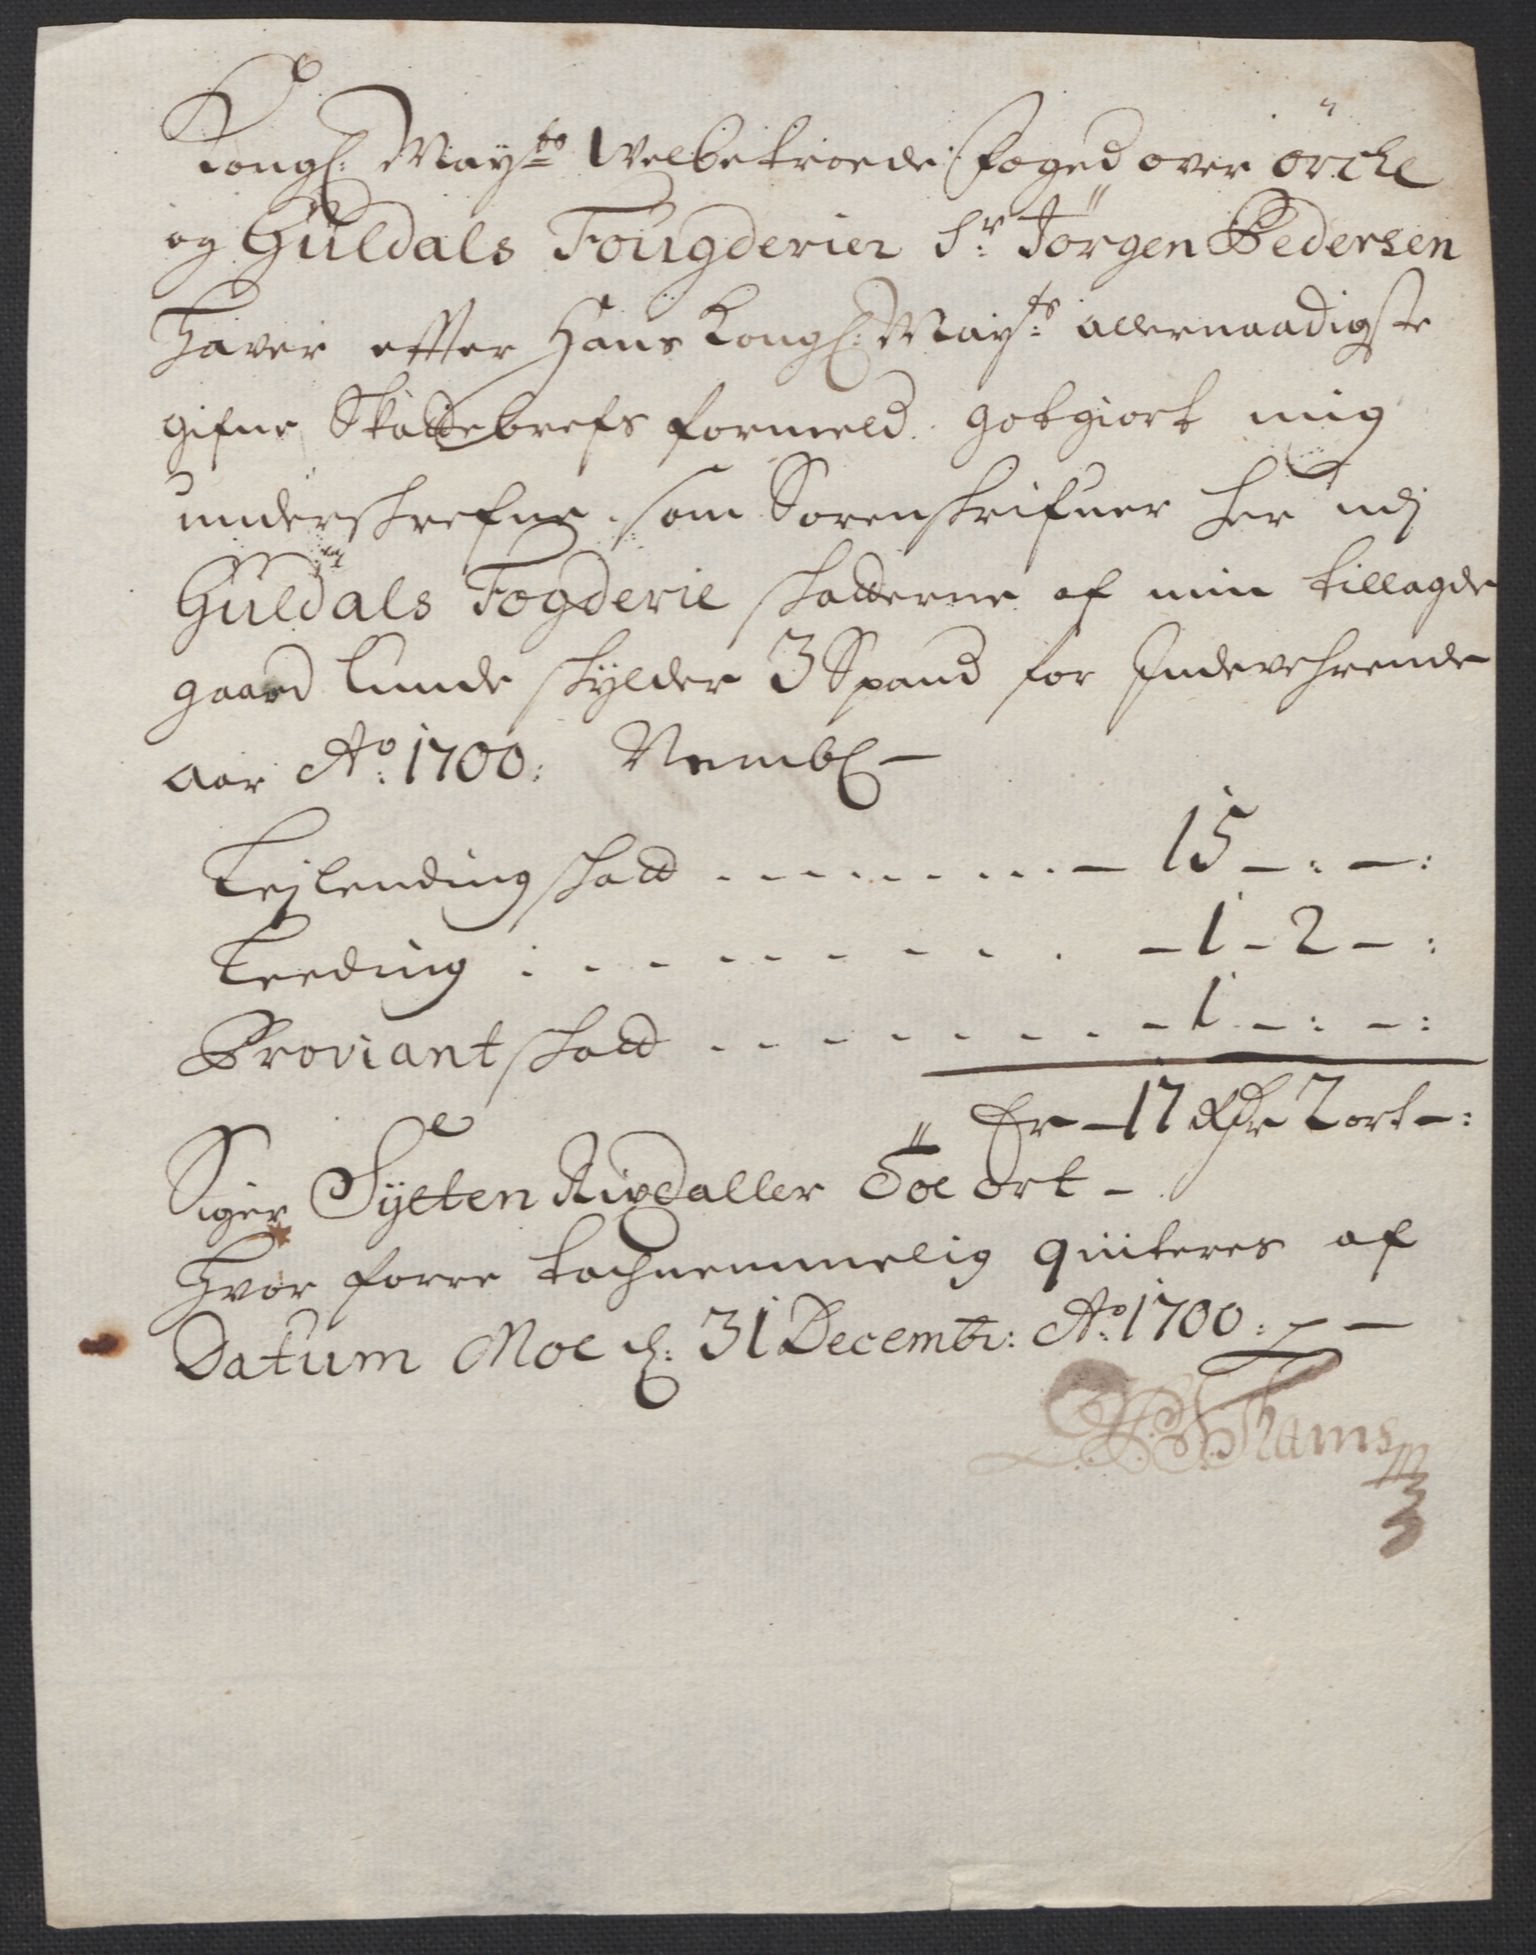 Kongl: Mayts Welbetroede Foged over örche
og Guldals Fougderier Sr: Jörgen Pedersen
Haver effter Hans Kongl: Mayts: allernaadigste
gifne Skattebrefs formeld. gotgiort mig
underskrefne som Sorenskrifuer her udj
Guldals Fogderie skatterne af min tillagde
gaard Lunde skylder 3 Spand for Indeverhrende
aar Ao: 1700: Nembl –
Lejlendingskatt . . . . . . . . – 15 – : – :
Leeding : . . . . . . . . . – 1 – 2 – :
Proviantskatt . . . . . . . . – 1 – : – :
Er – 17 Rdr 2 ort – :
Siger Sytten Rixdaller Töe ort –
Hvor forre tachnemmelig quiteres af
Datum Moe d: 31 Decembr: Ao: 1700 : – –
Thams